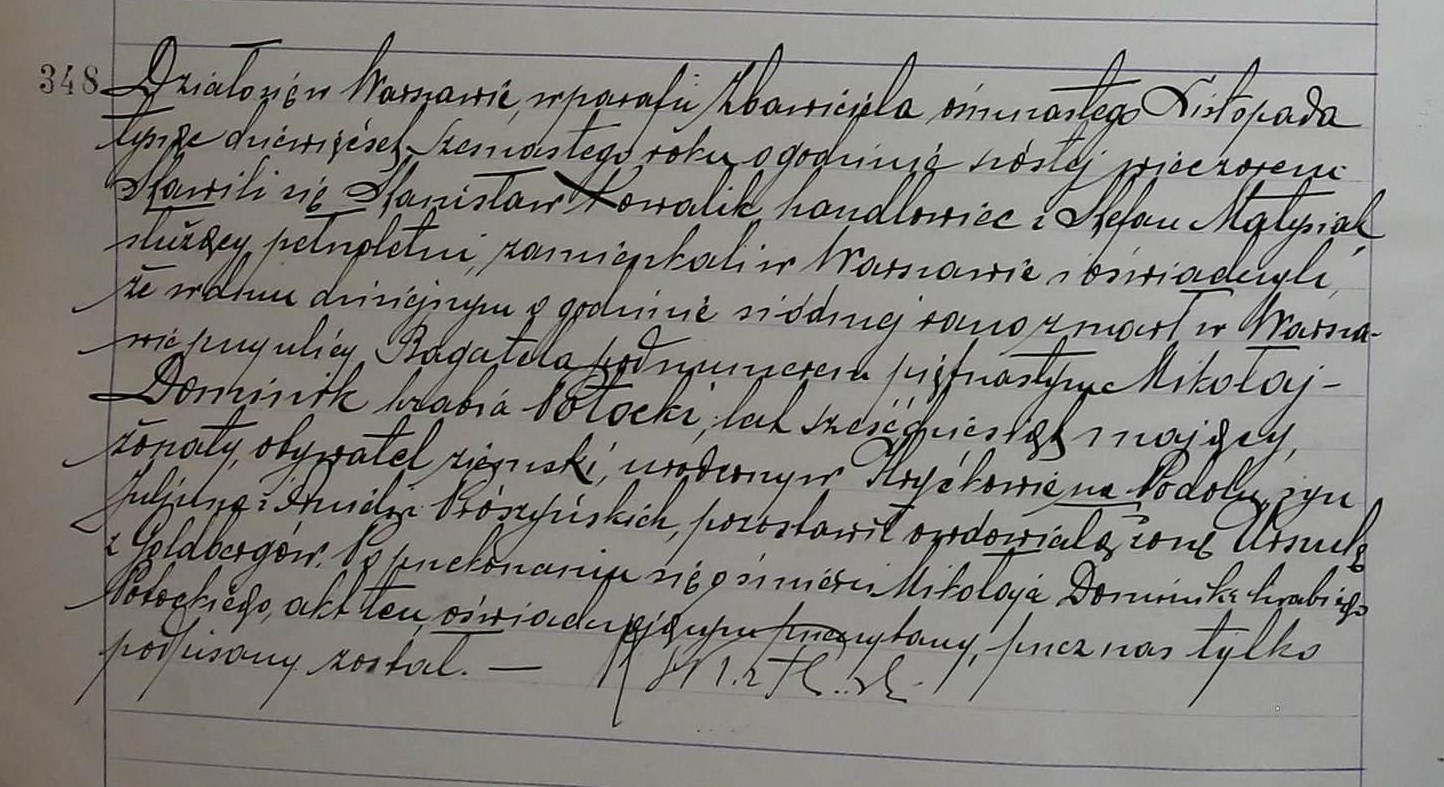 348 Działo się w Warszawie, w parafii Zbawiciela ośmnastego Listopada
tysiąc dziewięćset szesnastego roku o godzinie szóstej wieczorem
Stawili się Stanisław Kowalik, handlowiec i Stefan Matysiak,
służący, pełnoletni, zamieszkali w Warszawie i oświadczyli,
że w dniu dzisiejszym o godzinie siódmej rano zmarł w Warsza-
wie przy ulicy Bagatela pod numerem piętnastym Mikołaj-
Dominik hrabia Potocki, lat sześćdziesiąt mający,
żonaty, obywatel ziemski, urodzony w na Podolu, syn
Juljana i Anieli z Prószyńskich, pozostawił owdowiałą żonę Urszulę
z Goldbergów. Po przekonaniu się o śmierci Mikołaja Dominika hrabiego
Potockiego, akt ten, oświadczającym przeczytany, przez nas tylko
podpisany został. —